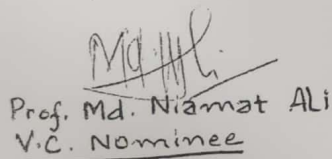 Prof. Md. Niamat ALi
V.C. Nominee